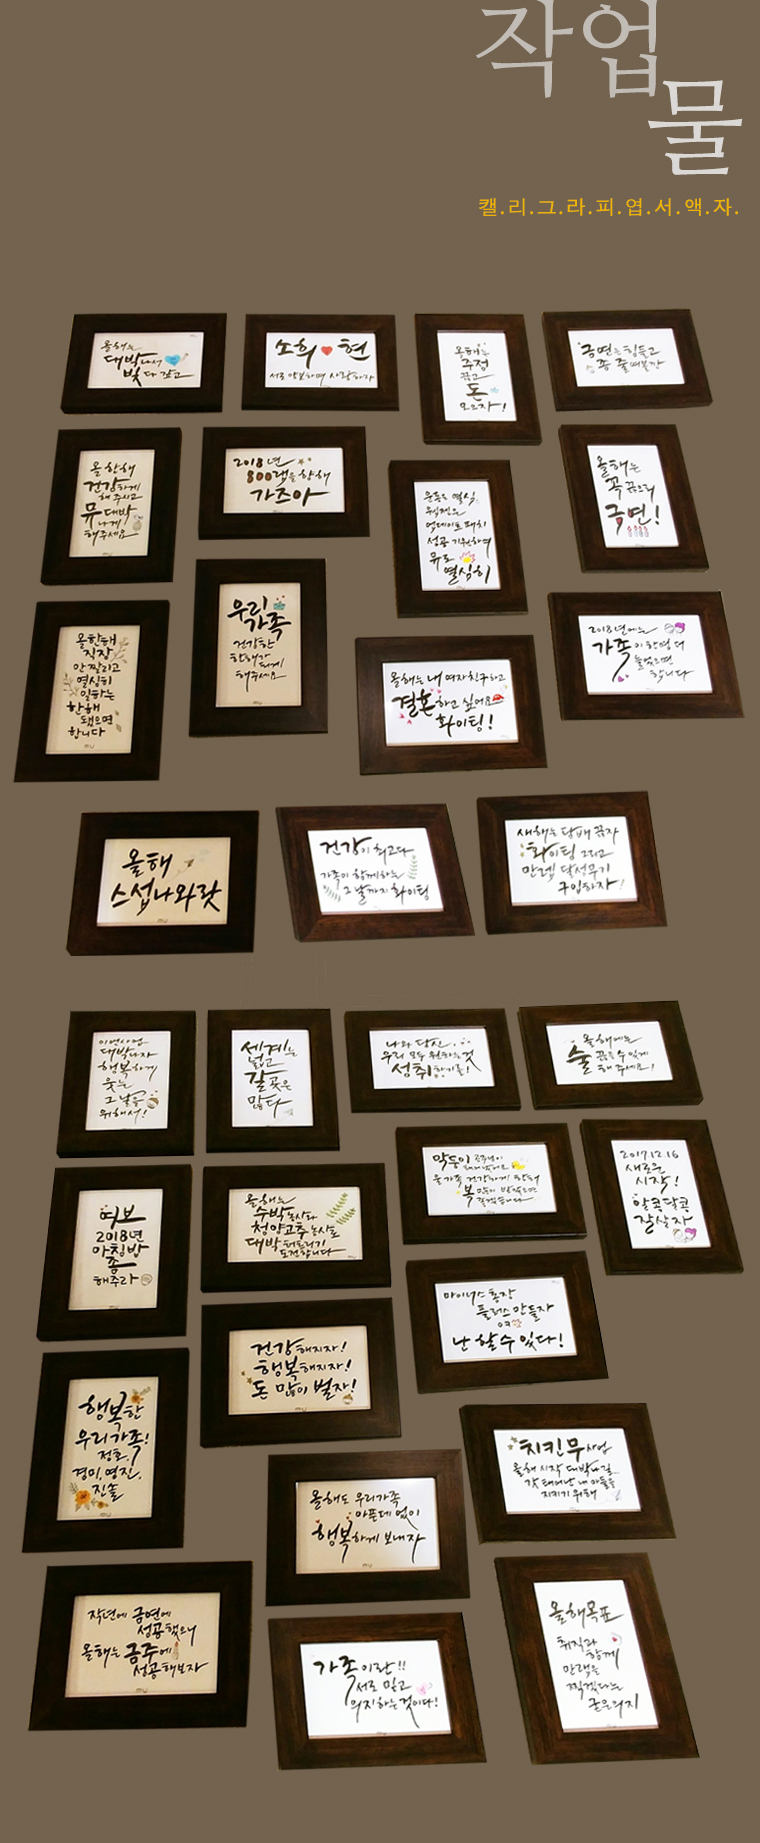 작업
물
캘.리.그.라.피.엽.서.액.자.
올해는
대박나서
빚 다 갚고
소희 현
서로 양보하며 사랑하자
올해는
주정
끊고
돈
모으자!
금연는 힘들고
좀 줄여볼간
올 한해
건강하게
해주시고
뮤 대박
나게
해주세요
2018년
800랩을 향해
가즈아
운동은 열심.
웹젠은
업데이트 패치
성공 기원하며
뮤도
열심히
올해는
꼭 끊으리
금연!
올한해
직장
안짤리고
열심히
일하는
한해
됐으면
합니다
우리
가족
건강한
한해가
되게
해주세요
올해는 내 여자친구하고
결혼하고 싶어요
화이팅!
2018년에는
가족이 한명 더
늘었으면
합니다
올해
스섭나와랏
건강이 최고다
가족이 함께하는
그날까지 화이팅
새해는 담배 끊자
화이팅 그리고
만렙 달성무기
구입하자!
이번사업
대박나자
행복하게
웃는
그날을
위해서!
세계는
넓고
갈 곳은
많다
나와 당신.
우리 모두 원하는 것
성취하기를!
올해에는
술 끊을수 있게
해 주세요!
막둥이
온가족 건강하게
복
2017.12.16
새로운
시작!
알콩달콩
잘살자
여보
2018년
아침밥
좀
해주라
올해는
수박농사와
청양고추농사로
대박 터트리기
도전합니다
마이너스 통장
플러스 만들자
난 할수있다!
건강해지자!
행복해지자!
돈 많이 벌자!
행복한
우리가족!
정호.
경미.영진.
진솔
치킨무사업
올해 시작 대박나길
갓 태어난 내 아들을
지키기 위해
올해도 우리가족
아픈데 없이
행복하게 보내자
작년에 금연에
성공했으니
올해는 금주에
성공해보자
가족이란!!
서로 믿고
의지하는것이다!
올해목표
취직과
함께
만랩은
찍겠다는
굳은의지